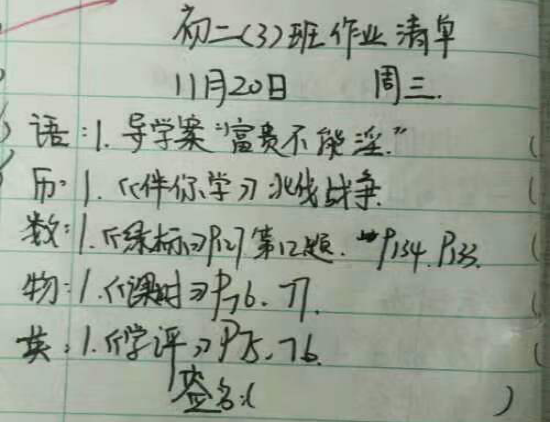 初二(3)班作业清单
11月20日 周三.
语:1.导学案“富贵不能淫.”
历:1.《伴你学》北伐战争.
数:1.《绿标》P127第12题. P134.P133.
物:1.《课时》P76.77.
英:1.《学评》P75.76.
签名:( )